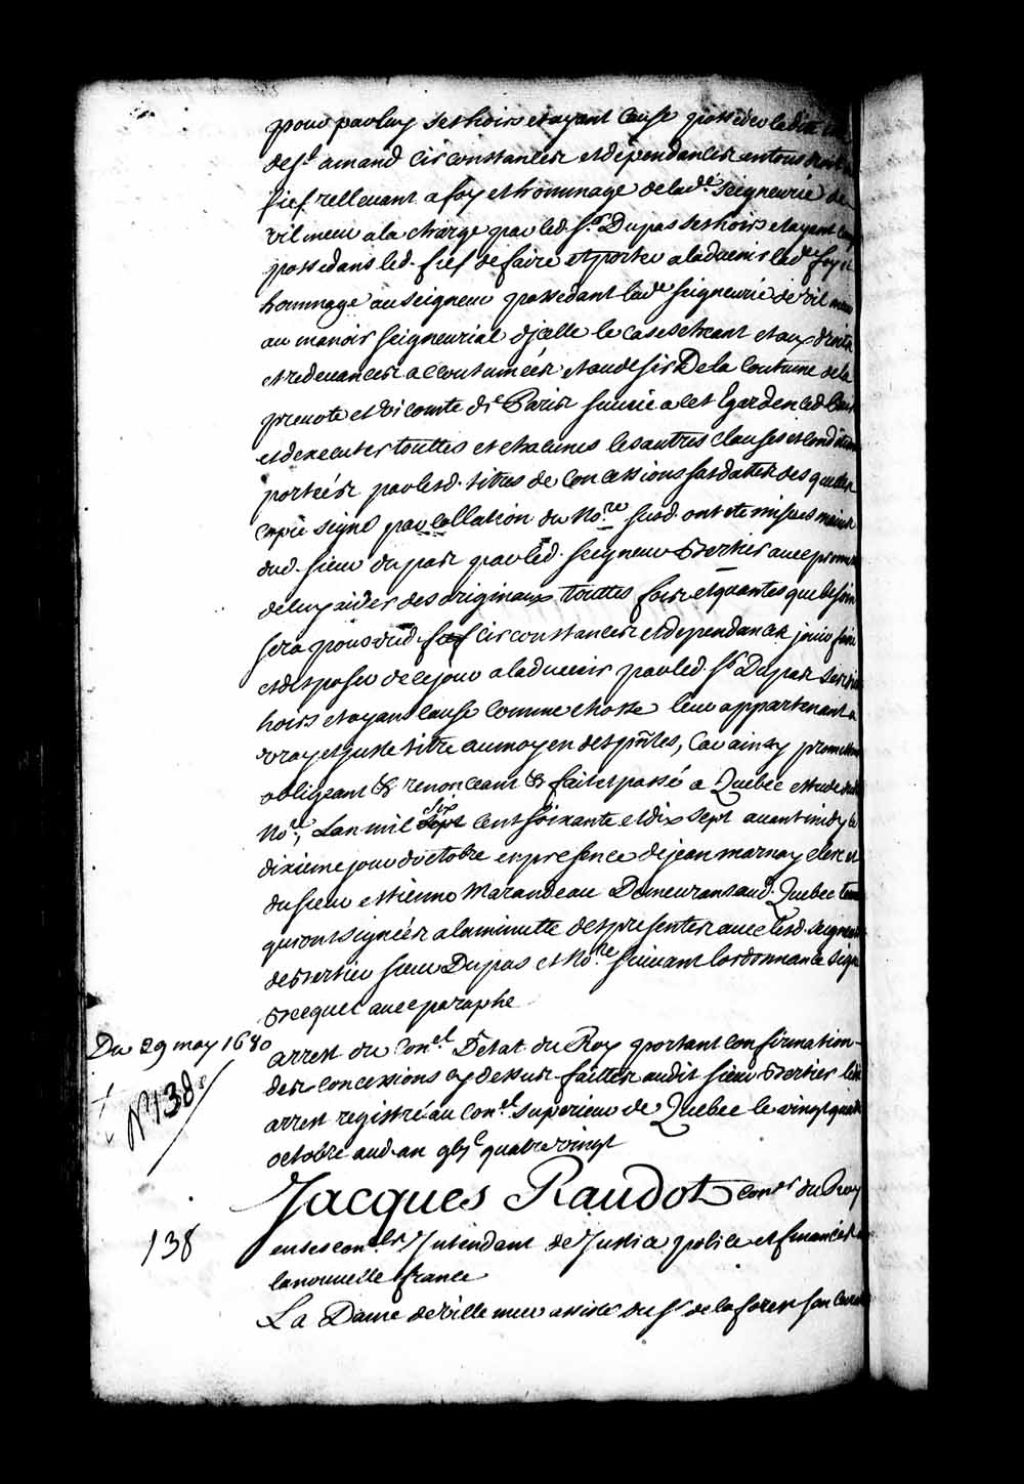 pour par luy ses hoirs et ayant Cause posseder ladite
de St. amand circonstances et dependances en tous
fief rellevant a foy et hommage de lade. Seigneurie de
vil meu a la charge par led. Sr. Dupas ses hoirs et ayant
possedans led. fief de faire et porter a ladvenir lade foy et
hommage au seigneur possedant lade seigneurie de vil meu
au manoir seigneurial djcelle le cas escheant et aux droits
et redevances accoutumées et au desir De la Coutume de la
prevoté et vicomté de Paris suivie a cet Egard en ced.
et dexecuter touttes et chacunes les autres clauses et conditions
portées par lesd. titres de Concessions susdattés desquelles
copie signé par collation du Nore. susd. ont ete mises
dud. sieur dupas par led. seigneur Berthier avec
de luy aider des originaux touttes fois et quantes que besoin
sera pour dud fief circonstances et dependances jouir
et disposer de ce jour a ladvenir par led. Sr Dupas ses
hoirs et ayans cause comme chosse leur appartenant a
vray et juste titre au moyen des pntes, Car ainsy
obligeant & renonceant & fait et passé a Quebec etude dud
Nore, Lan mil six Sept cent soixante et dix sept avant midy le
dixieme jour doctobre en presence de jean marnay clerc et
du sieur estienne Marandeau Demeurans aud. Quebec
qui ont signées a la minutte des presentes avec lesd. seigneur
de Bertier sieur Dupas et Nore. suivant lordonnance signé
Becquet avec paraphe
Du 29 may 1680
arrest du Conel Détat du Roy portant confirmation
des concessions cy dessus faittes audit sieur Bertier
arrest registré au Conel. superieur de Quebec le vingt quatre
octobre aud. an gbjc quatre vingt
N 138
Jacques Raudot coner du Roy
138
en ses conels Jntendant de Justice police et finances
la nouvelle france
La Dame de villemeu assisté du Sr de la forest son